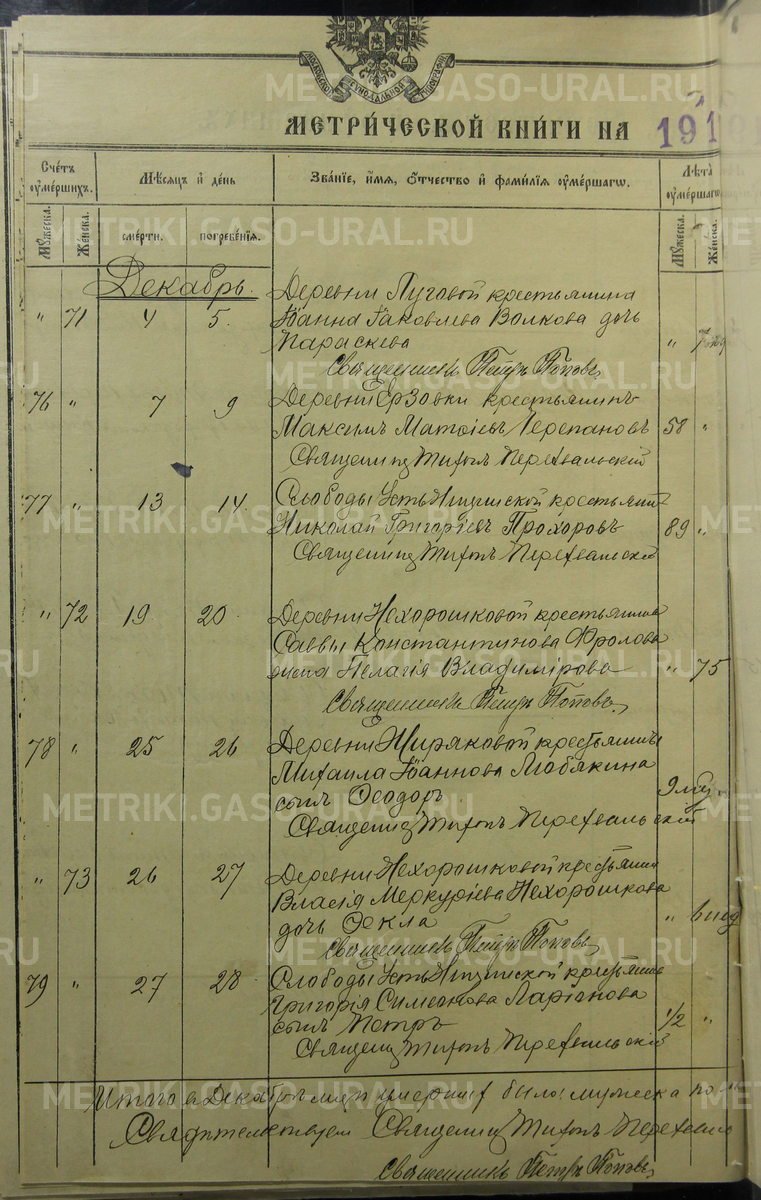 МОСКОВСКОЙ СѴНОДАЛЬНОЙ ТИПОГРАФІИ
METRIKI.GASO-URAL.RU
МЕТРИ́ЧЕСКОЙ КНИ́ГИ НА 191
Сче́тъ ᲂу҆ме́ршихъ.
Мѣ́сяцъ и҆ де́нь
Зва́нїе, и҆́мя, ѻ҆́тчество и҆ фами́лїя ᲂу҆ме́ршагѡ.
Лѣ́та ᲂу҆ме́ршагѡ
Мꙋ́жеска. Же́нска. сме́рти. погребе́нїя. Мꙋ́жеска. Же́нска.
Декабрь.
Деревни Луговой крестьянина
" 71 4 5. Іоанна Іаковлева Волкова дочь
Параскева "
Священникъ Петръ Поповъ.
76 " 7 9 Деревни Ерзовки крестьянинъ
Максимъ Матѳіевъ Черепановъ 58 "
Священник Тихонъ Перехвальскій
77 " 13 14. Слободы Усть Ницинской крестьянин
Николай Григоріевъ Прохоровъ 89 "
Священник Тихонъ Перехвальскій
" 72 19 20. Деревни Нехорошковой крестьянина
Саввы Константинова Фролова
жена Пелагія Владимірова " 75
Священникъ Петръ Поповъ.
78 " 25 26 Деревни Жиряковой крестьянина
Михаила Іоаннова Любякина
сынъ Ѳеодоръ
Священник Тихонъ Перехвальскій
" 73 26 27 Деревни Нехорошковой крестьянина
Власія Меркуріева Нехорошкова
дочь Ѳекла "
Священникъ Петръ Поповъ.
79 " 27 28 Слободы Усть Ницинской крестьянина
Григорія Симеонова Ларіонова
сынъ Петръ 1/2 "
Священник Тихонъ Перехвальскій
Итого в Декабрѣ умершихъ было: мужеска по
Свидѣтельствуем Священник Тихонъ Перехваль
Священникъ Петръ Поповъ.